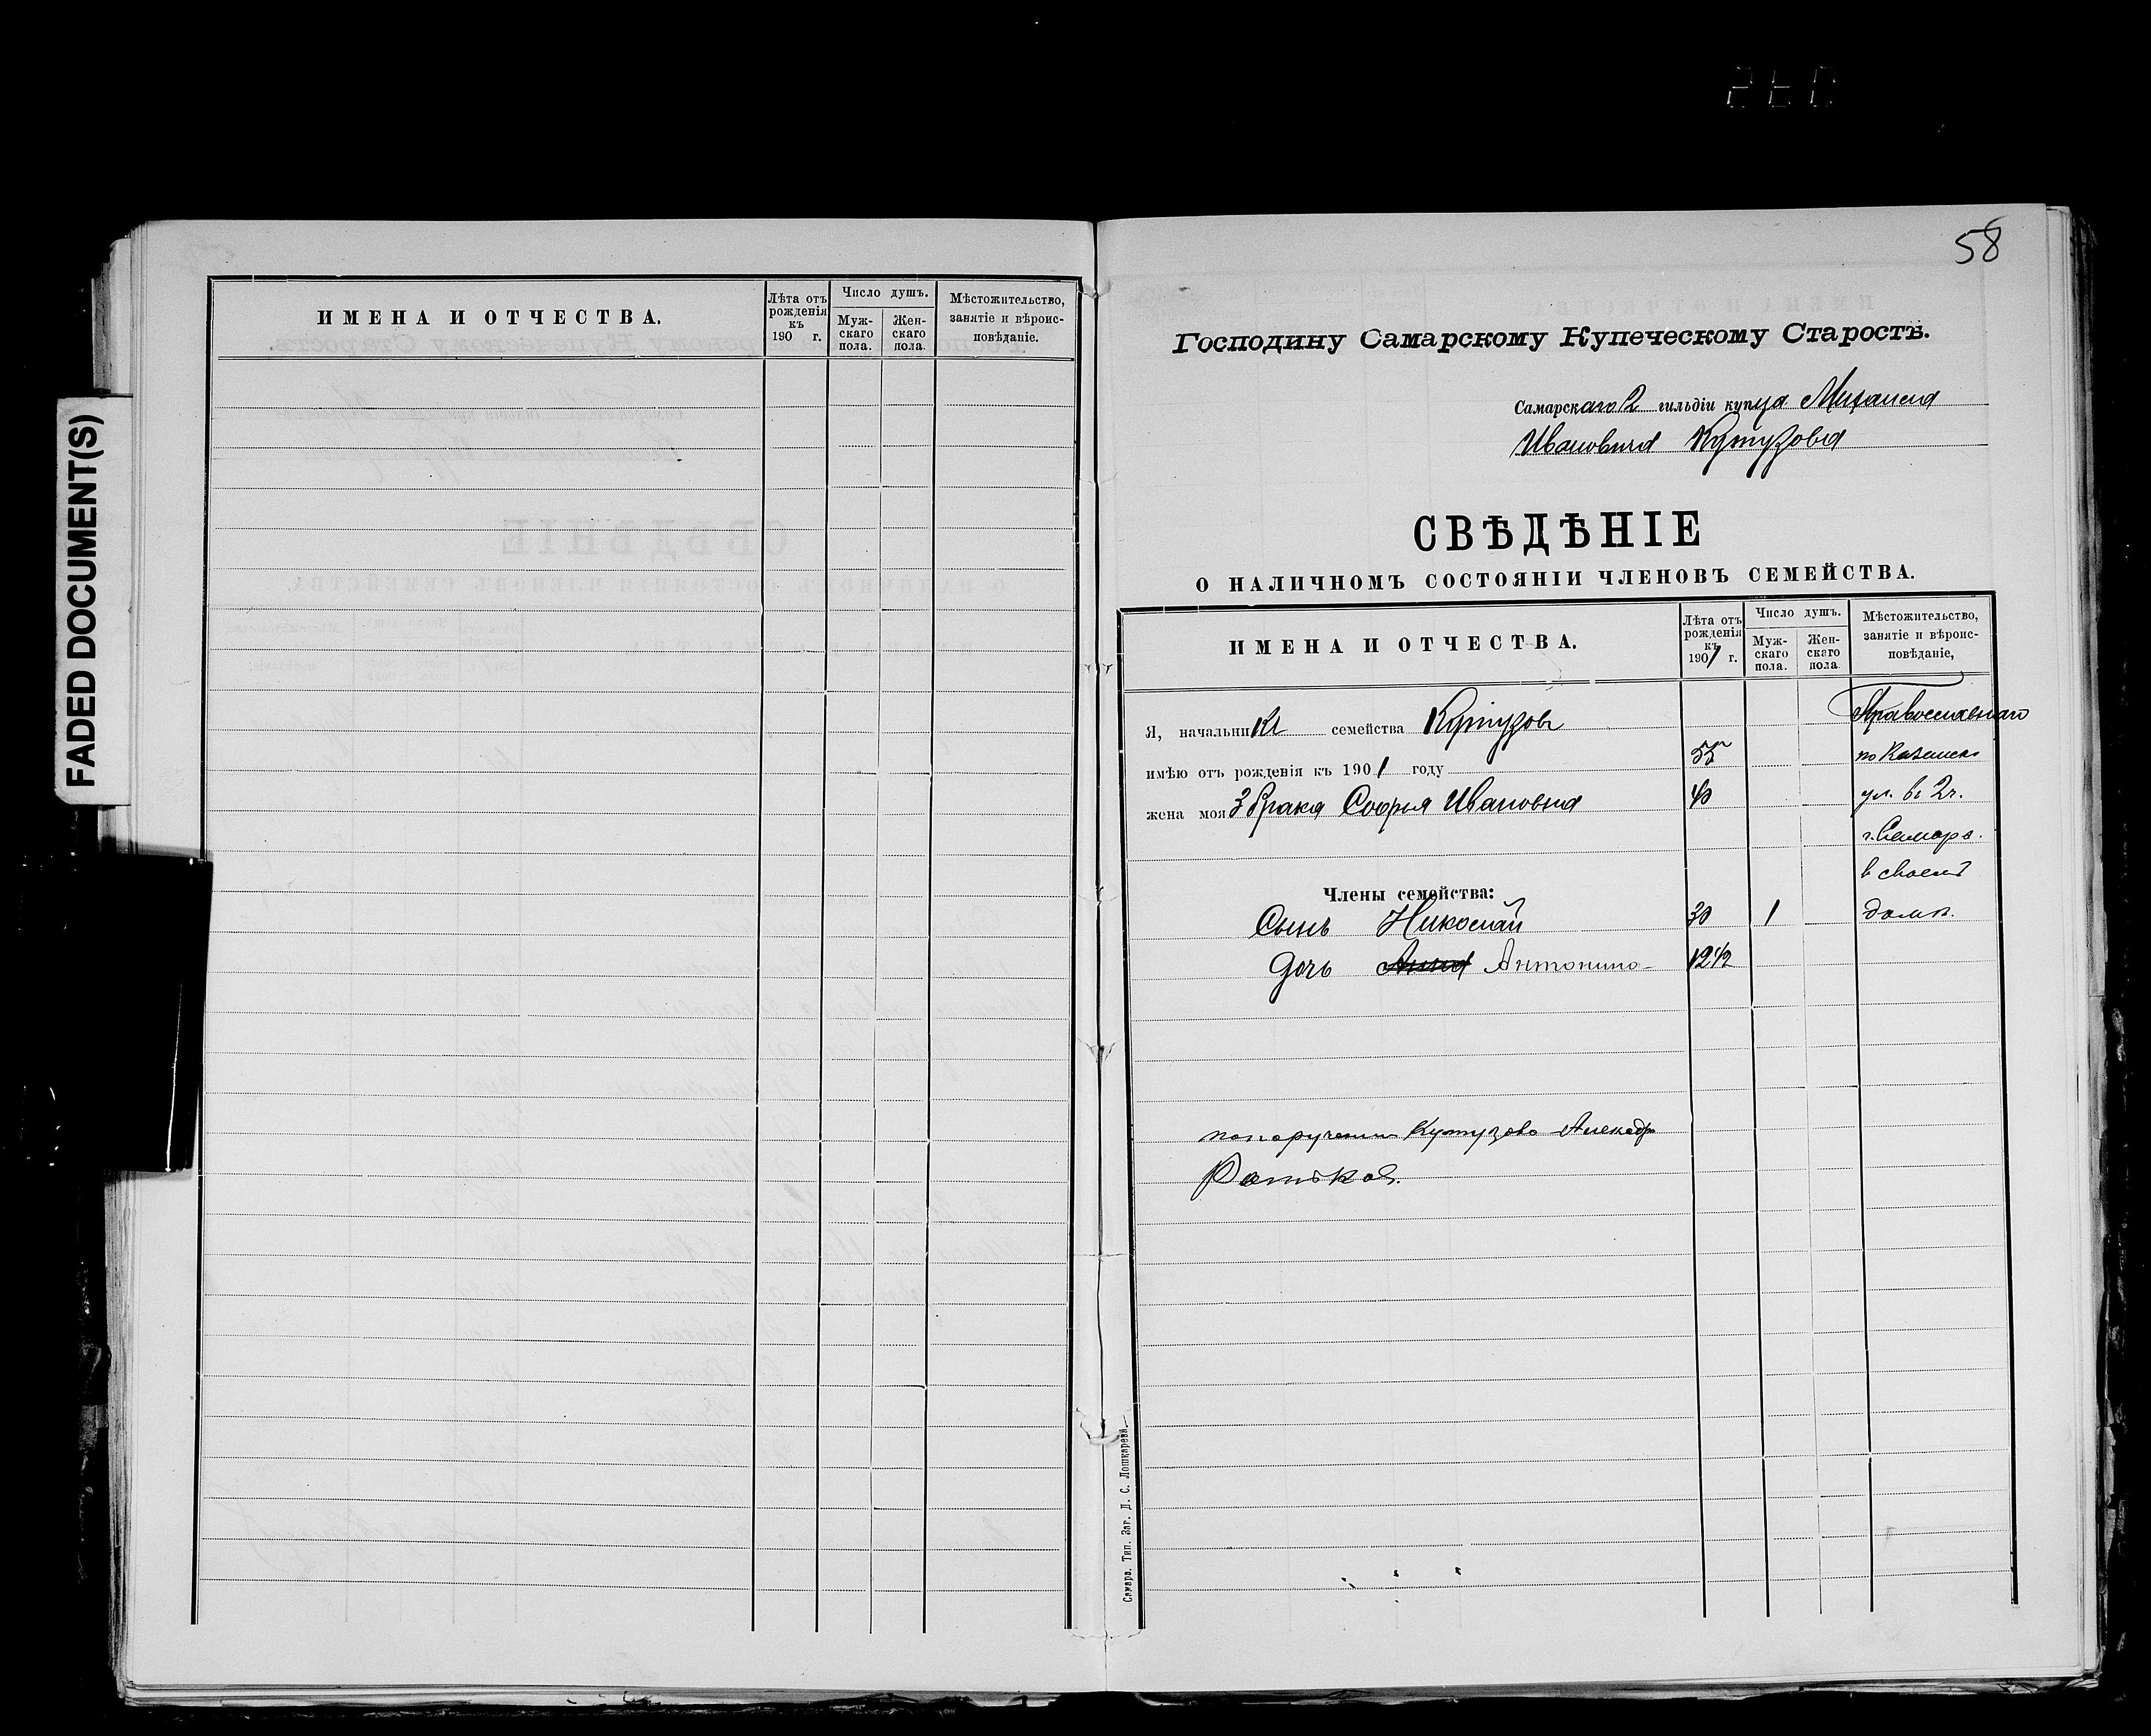 FADED DOCUMENT(S)
ИМЕНА И ОТЧЕСТВА.
Лѣта отъ рожденія къ 190 г.
Число душъ.
Муж-скаго пола.
Жен-скаго пола.
Мѣстожительство, занятіе и вѣроис-повѣданіе.
58
Господину Самарскому Купеческому Старостѣ.
Самарскаго 2 гильдіи купца Михаила
Ивановича Кутузова
СВѢДѢНІЕ
О НАЛИЧНОМЪ СОСТОЯНІИ ЧЛЕНОВЪ СЕМЕЙСТВА.
ИМЕНА И ОТЧЕСТВА.
Лѣта отъ рожденія къ 1901 г.
Число душъ.
Муж-скаго пола.
Жен-скаго пола.
Мѣстожительство, занятіе и вѣроис-повѣданіе,
Я, начальникъ семейства Кутузовъ Православнаго
имѣю отъ рожденія къ 1901 году 55 по Казанск
жена моя 3 брака Софья Ивановна 40 ул. въ 2 ч.
г. Самары.
в своемъ
Члены семейства:
Сынъ Николай 30 1 домѣ.
Дочь Анна Антонина 12 1/2
по поручению Кутузова Алекадр
Самара. Тип. Заг. Д. С. Лошкарева.